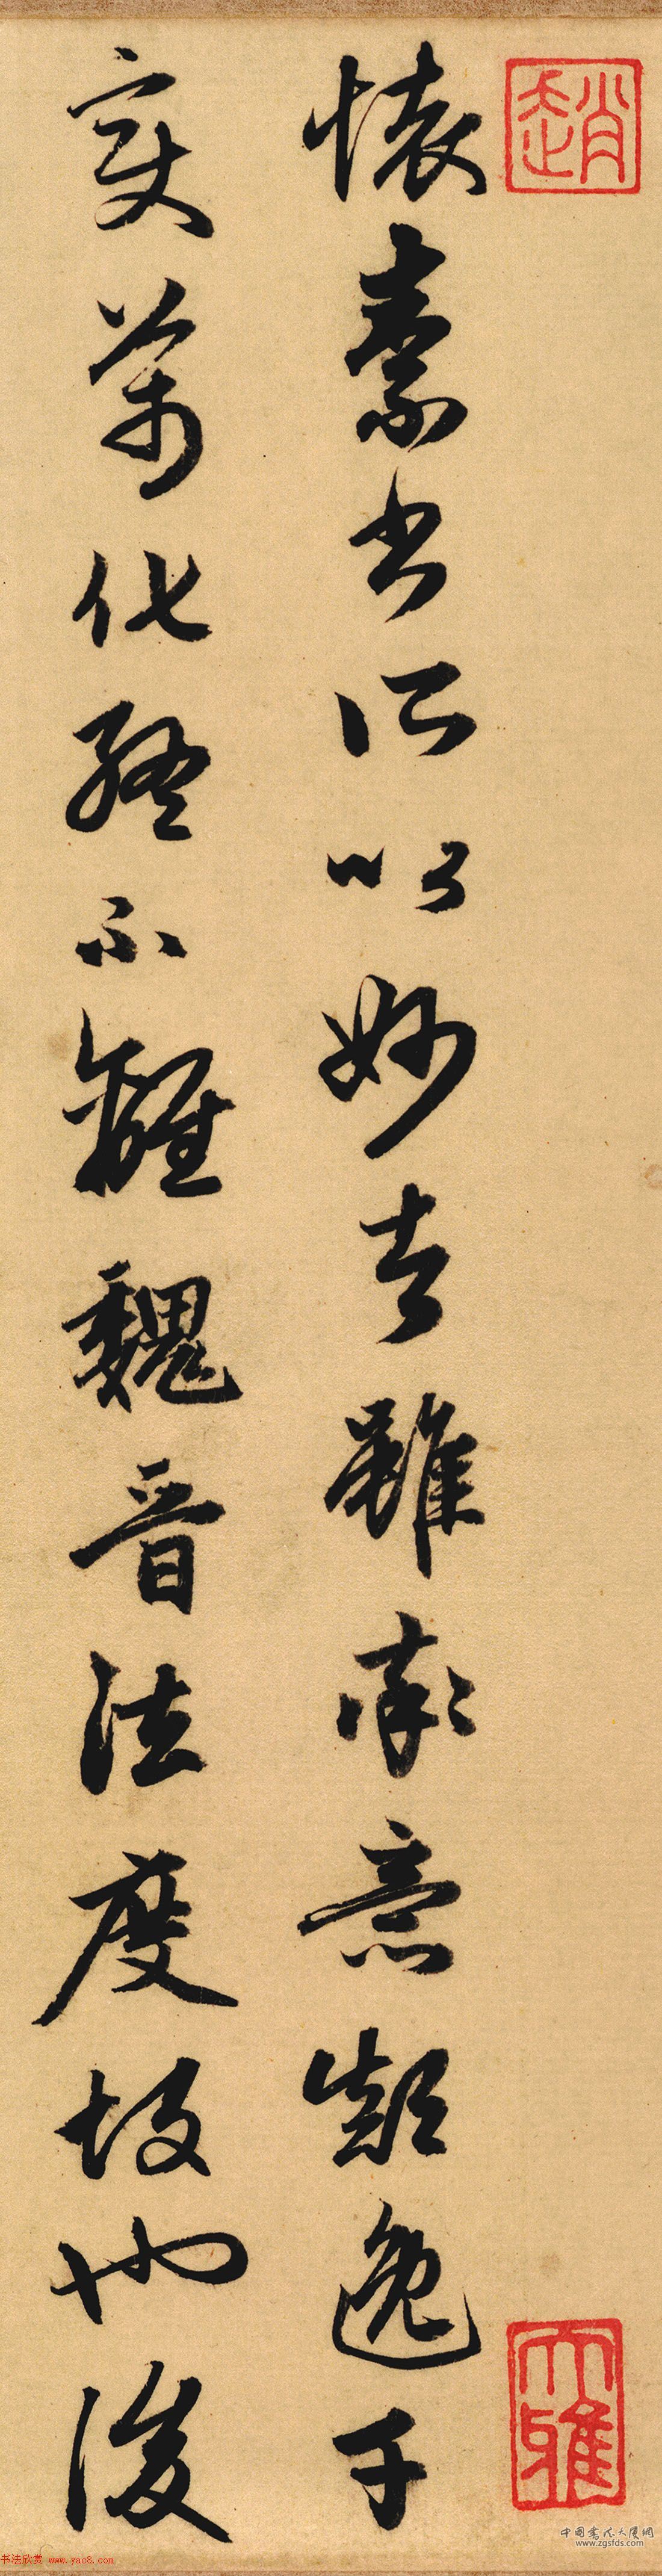 趙
大雅
懷素書所以妙者雖率意顛逸千
變萬化終不離魏晉法度故也後
书法欣赏 www.yac8.com
中國書法大厦網
www.zgsfds.com